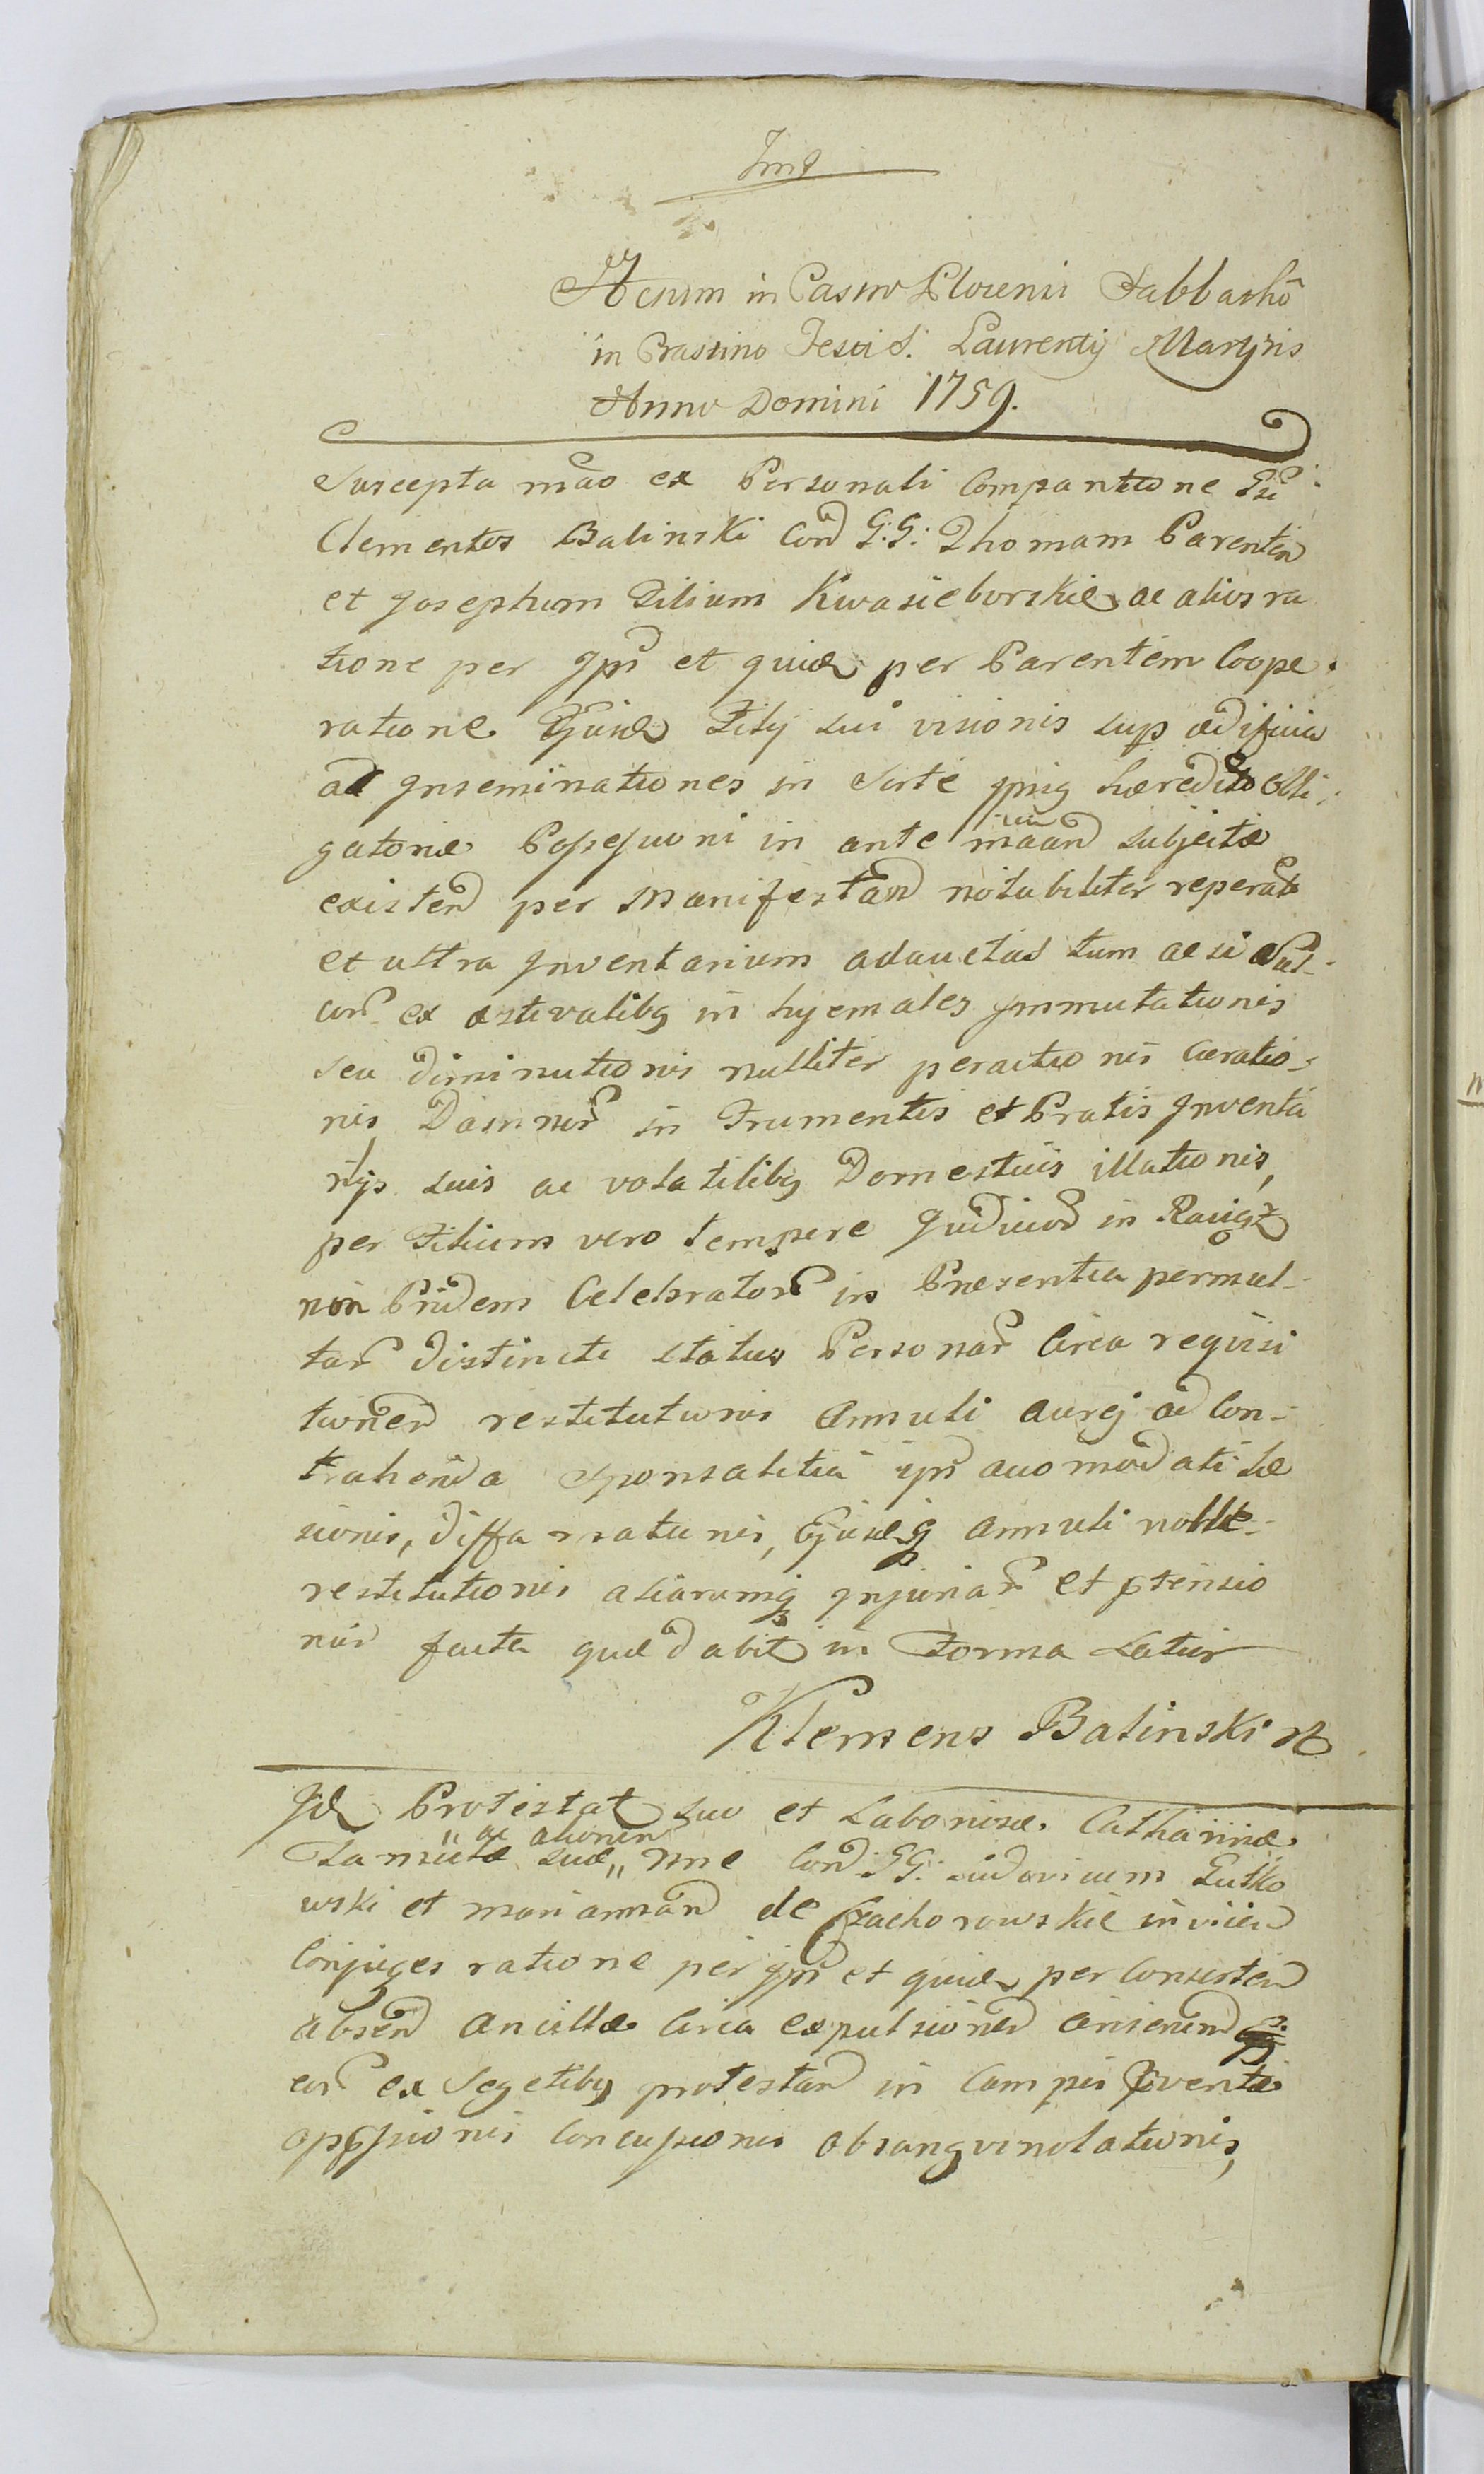 Actum in Castro Plocensi Sabbatho
in Crastino Festi S. Laurentij Martyris
Anno Domini 1759.
Suscepta mão ex Personali Comparitione Gsi
Clementis Balinski Con G: G: Thomam Parentem
et Josephum Filium Kwasieborskie ac alios ra
tione per Ipm et quid per Parentem Coope
ratione Ejusd Filij sui visionis sup ædificia
ad Inseminationes in Sorte ipius hæredit Obli
gatoriæ Possessioni in ante subjectæ
existen per Manifestan notabiliter reperat
et ultra Inventarium adauctas tum ac si
ex æstivalibg in hyemales Immutationis
seu diminutionis nulliter peractionis
nis Damnor in Frumentis et Pratis Inventa
rijs suis ac volatilibg Domesticis illationis,
per Filium vero tempore Judicior in Raciąż
non Pridem Celebrator in Præsentia permul
tar distincti status Personar Circa requisi
tionem restitutionis Annuli aurej ad Con
trahenda Sponsalitia ipi accomodati læ
sionis, diffamationis, Ejusdq Annuli
restitutionis aliarumq Injuriar et ptensio
nis facta quæ dabit in Forma Latius
Klemens Balinski
Id Protestat suo et Laboriosæ Catharinæ
ac alionin
Famulæ suæ nne Con GG: Ludovicum Lutko
wski et Mariannam de Czachorowskie invicem
Conjuges ratione per ipm et quid per Consortem
absen Ancillæ Circa expulsionem Anserum
eor ex Segetibg protestan in Campis Inventæ
oppssionis Concussionis obsangvinolationis,